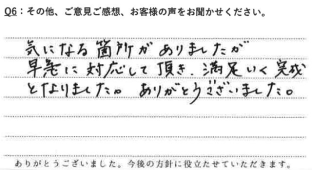 Q6：その他、ご意見ご感想、お客様の声をお聞かせください。
気になる箇所がありましたが
早急に対応して頂き、満足いく完成
となりました。ありがとうございました。
ありがとうございました。今後の方針に役立たせていただきます。